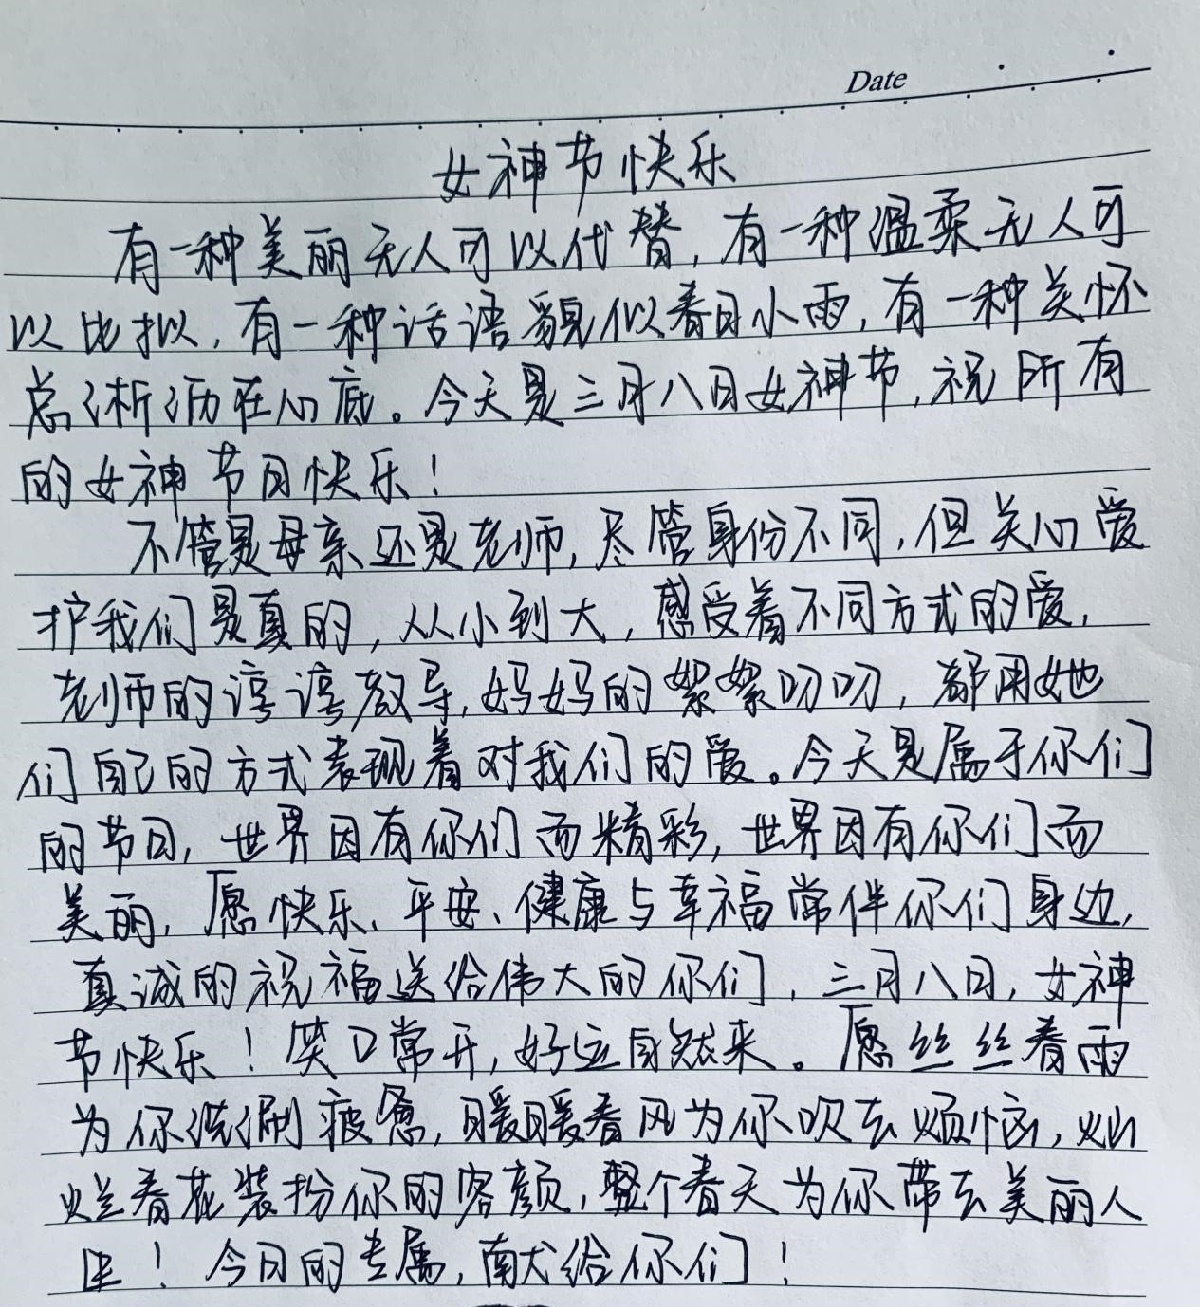 Date
女神节快乐
有一种美丽无人可以代替,有一种温柔无人可
以比拟,有一种话语貌似春日小雨,有一种关怀
总淅沥在心底。今天是三月八日女神节,祝所有
的女神节日快乐!
不管是母亲还是老师,尽管身份不同,但关心爱
护我们是真的,从小到大,感受着不同方式的爱,
老师的谆谆教导,妈妈的絮絮叨叨,都用她
们自己的方式表现着对我们的爱。今天是属于你们
的节日,世界因有你们而精彩,世界因有你们而
美丽,愿快乐、平安、健康与幸福常伴你们身边,
真诚的祝福送给伟大的你们,三月八日,女神
节快乐!笑口常开,好运自然来。愿丝丝春雨
为你洗涮疲惫,暖暖春风为你吹去烦恼,灿
烂春花装扮你的容颜,整个春天为你带去美丽人
生!今日的专属,献给你们!